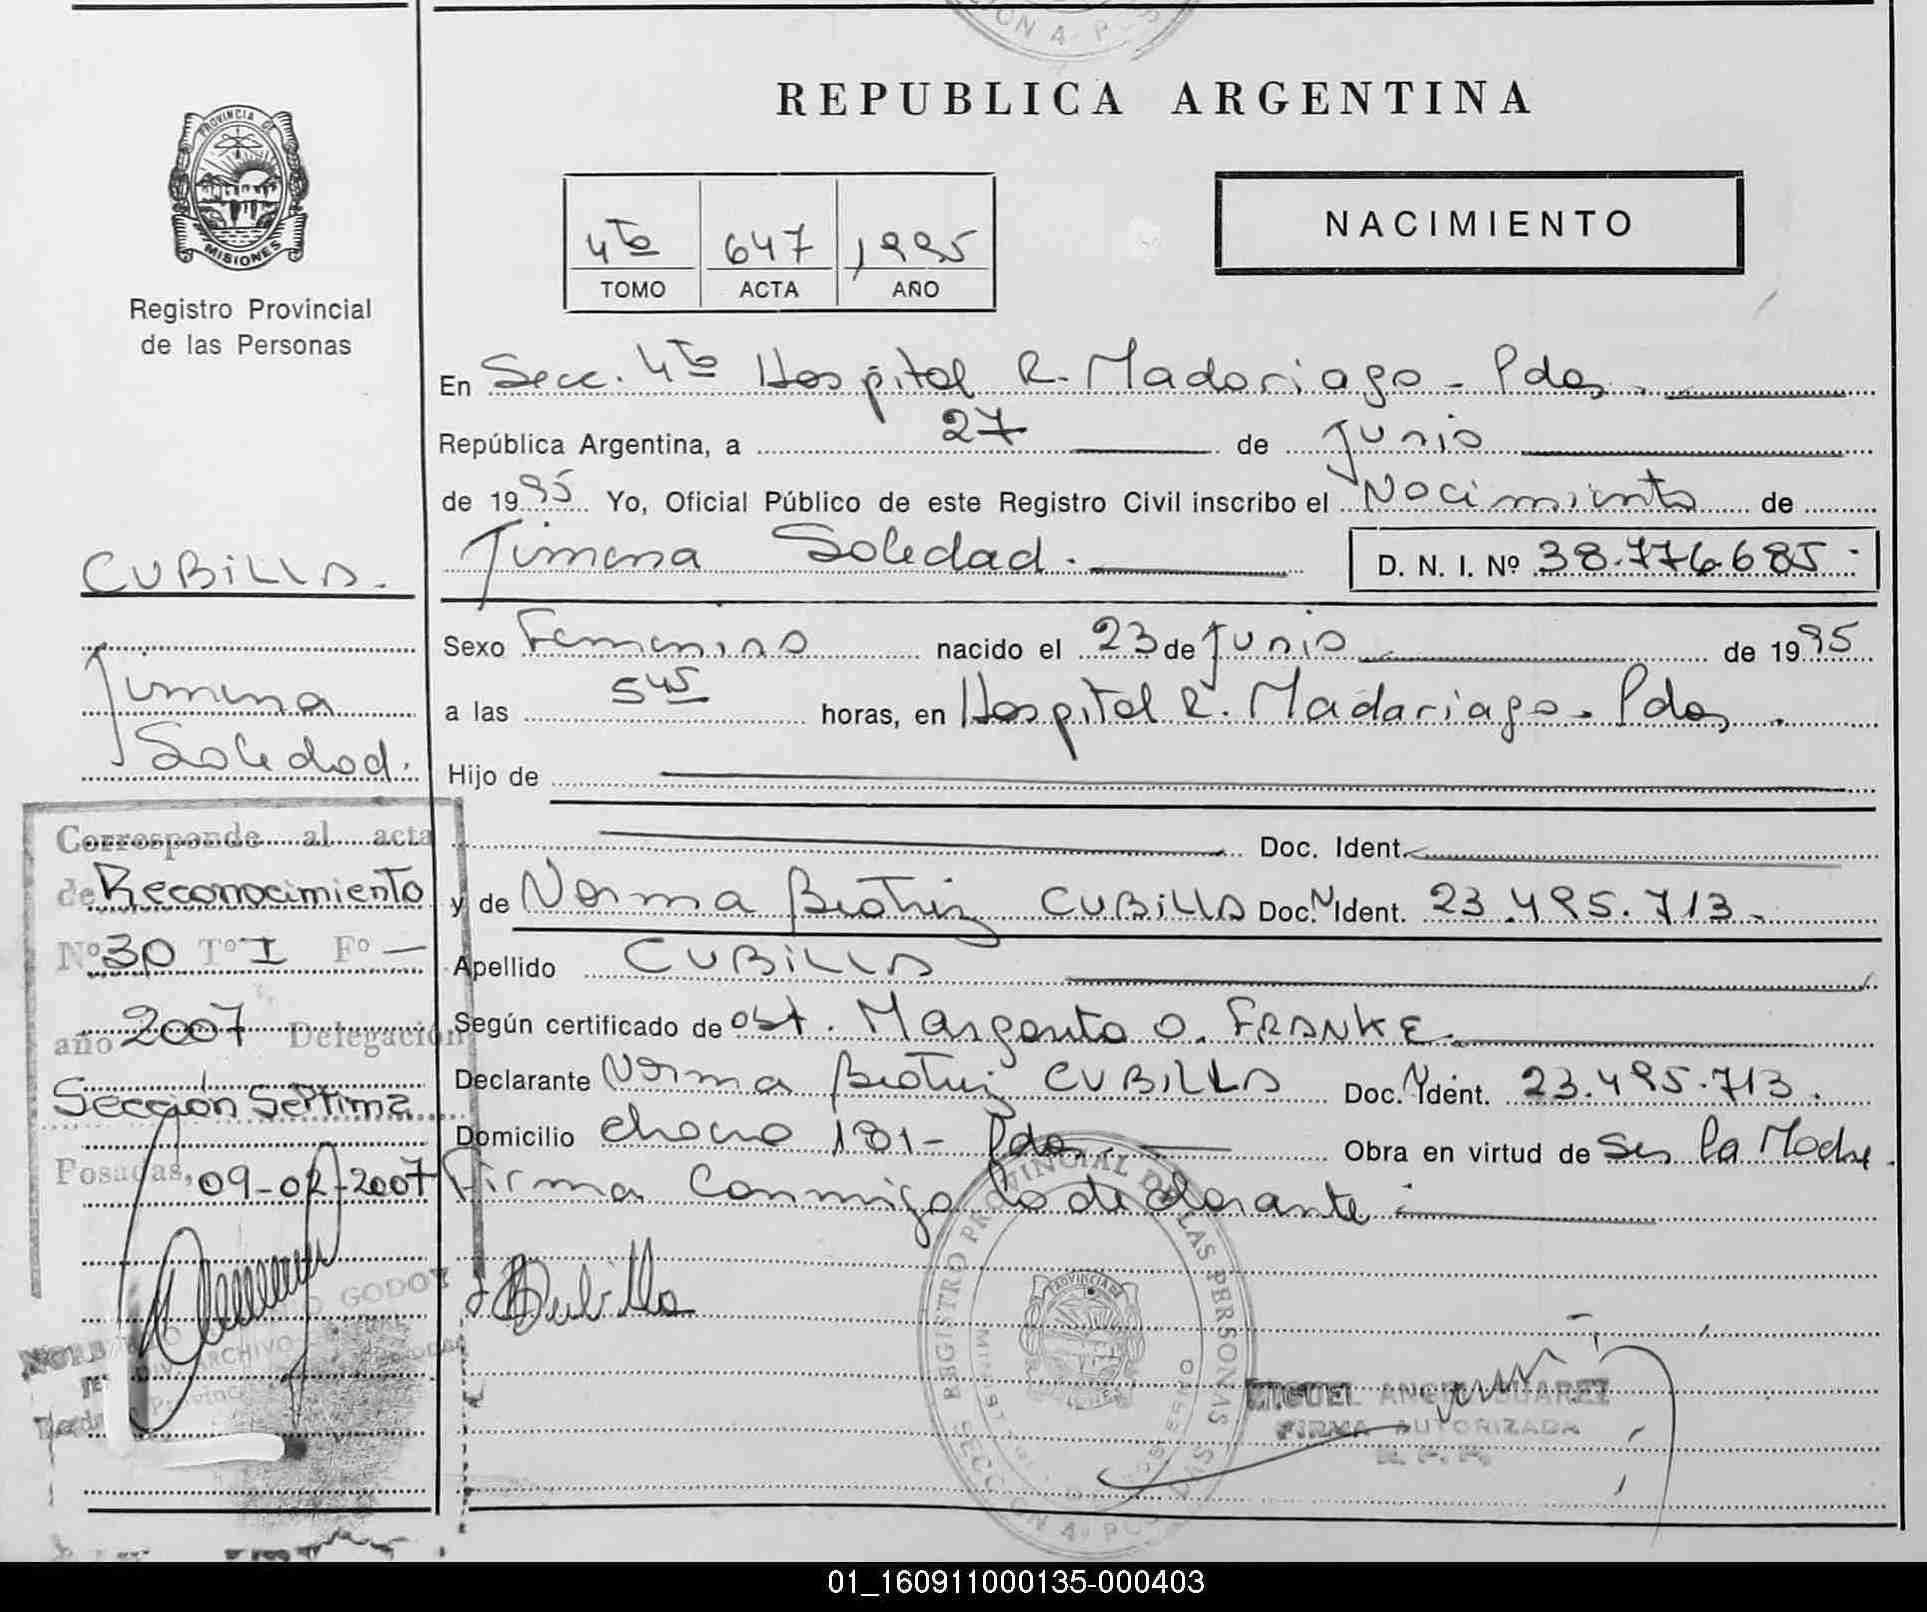 REPUBLICA ARGENTINA
PROVINCIA DE
MISIONES
Registro Provincial
de las Personas
NACIMIENTO
4to 647 1995
TOMO ACTA AÑO
En Secc. 4to Hospital R. Madariaga - Pdas.
República Argentina, a 27 de Junio
de 1995 Yo, Oficial Público de este Registro Civil inscribo el Nacimiento de
Jimena Soledad. D. N. I. Nº 38.776.685.
Sexo Femenino nacido el 23 de Junio de 1995
a las 5 45 horas, en Hospital R. Madariaga - Pdas.
Hijo de
Doc. Ident.
y de Norma Beatriz CUBILLA Doc. N Ident. 23.495.713.
Apellido CUBILLA
Según certificado de obst. Margarita O. FRANKE.
Declarante Norma Beatriz CUBILLA Doc. N Ident. 23.495.713.
Domicilio Chaco 181 - Pdas. Obra en virtud de Ser la Madre.
Firma Conmigo la declarante
Cubilla
CUBILLA.
Jimena
Soledad.
Corresponde al acta
de Reconocimiento
Nº 30 Tº I Fº —
año 2007 Delegación
Sección Septima
Posadas, 09-02-2007
GODOY
ARCHIVO
REGISTRO PROVINCIAL DE LAS PERSONAS
MIGUEL ANGEL SUAREZ
FIRMA AUTORIZADA
R. P. P.
01_160911000135-000403